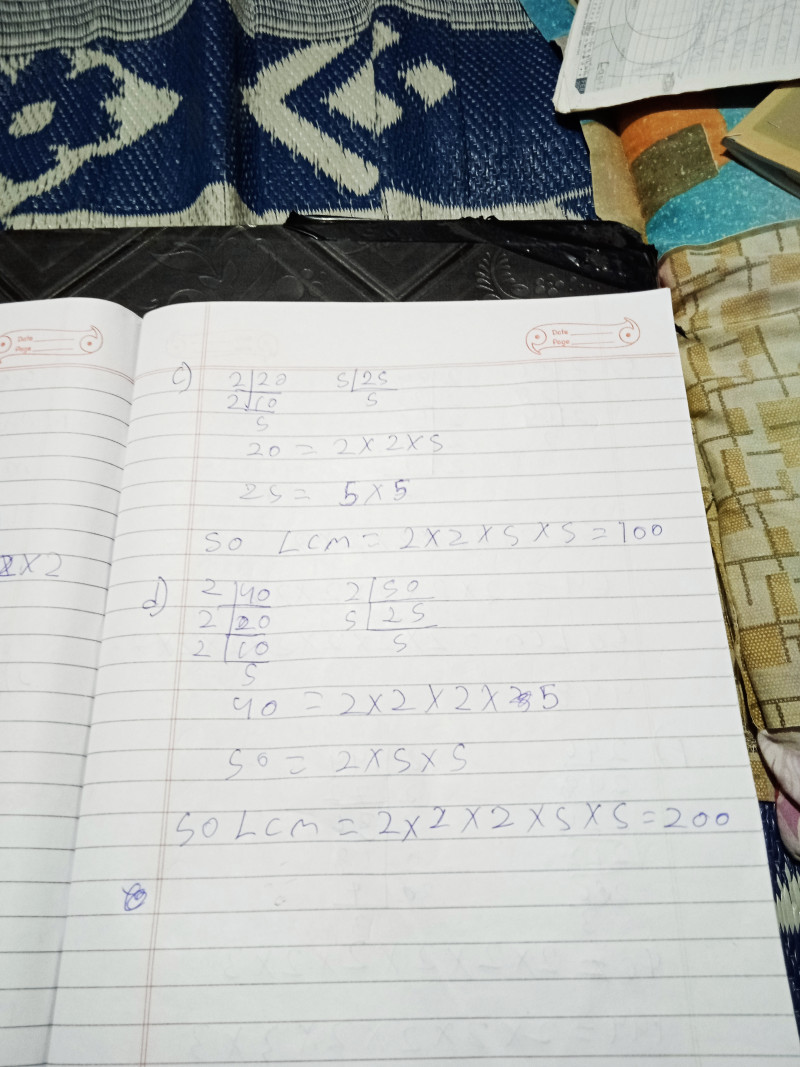 Date
Page
Date
Page
c) 2 | 20 5 | 25
2 | 10 5
5
20 = 2 × 2 × 5
25 = 5 × 5
SO LCM = 2 × 2 × 5 × 5 = 100
× 2
d) 2 | 40 2 | 50
2 | 20 5 | 25
2 | 10 5
5
40 = 2 × 2 × 2 × 5
50 = 2 × 5 × 5
SO LCM = 2 × 2 × 2 × 5 × 5 = 200